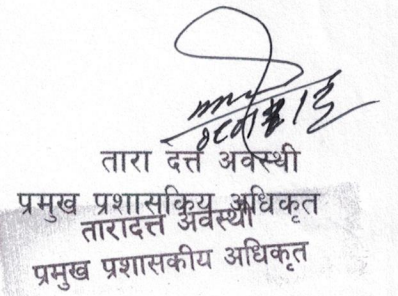 तारा दत्त अवस्थी
प्रमुख प्रशासकिय अधिकृत
तारादत्त अवस्थी
प्रमुख प्रशासकीय अधिकृत